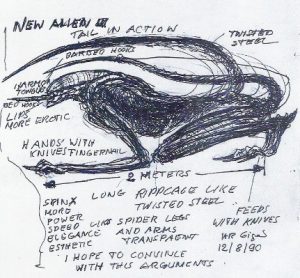 NEW ALIEN III
TAIL IN ACTION
TWISTED
STEEL
BARBED HOOKS
TONGUE
LIPS
MORE EROTIC
HANDS WITH
KNIVES FINGERNAIL
2 METERS
LONG RIPPCAGE LIKE
TWISTED STEEL
SFINX
MORE
POWER
SPEED LIKE SPIDER LEGS
ELEGGANCE AND ARMS
ESTHETIC TRANSPAENT
FEEDS
WITH KNIVES
HR Giger
12/8/90
I HOPE TO CONVINCE
WITH THIS ARGUMENTS